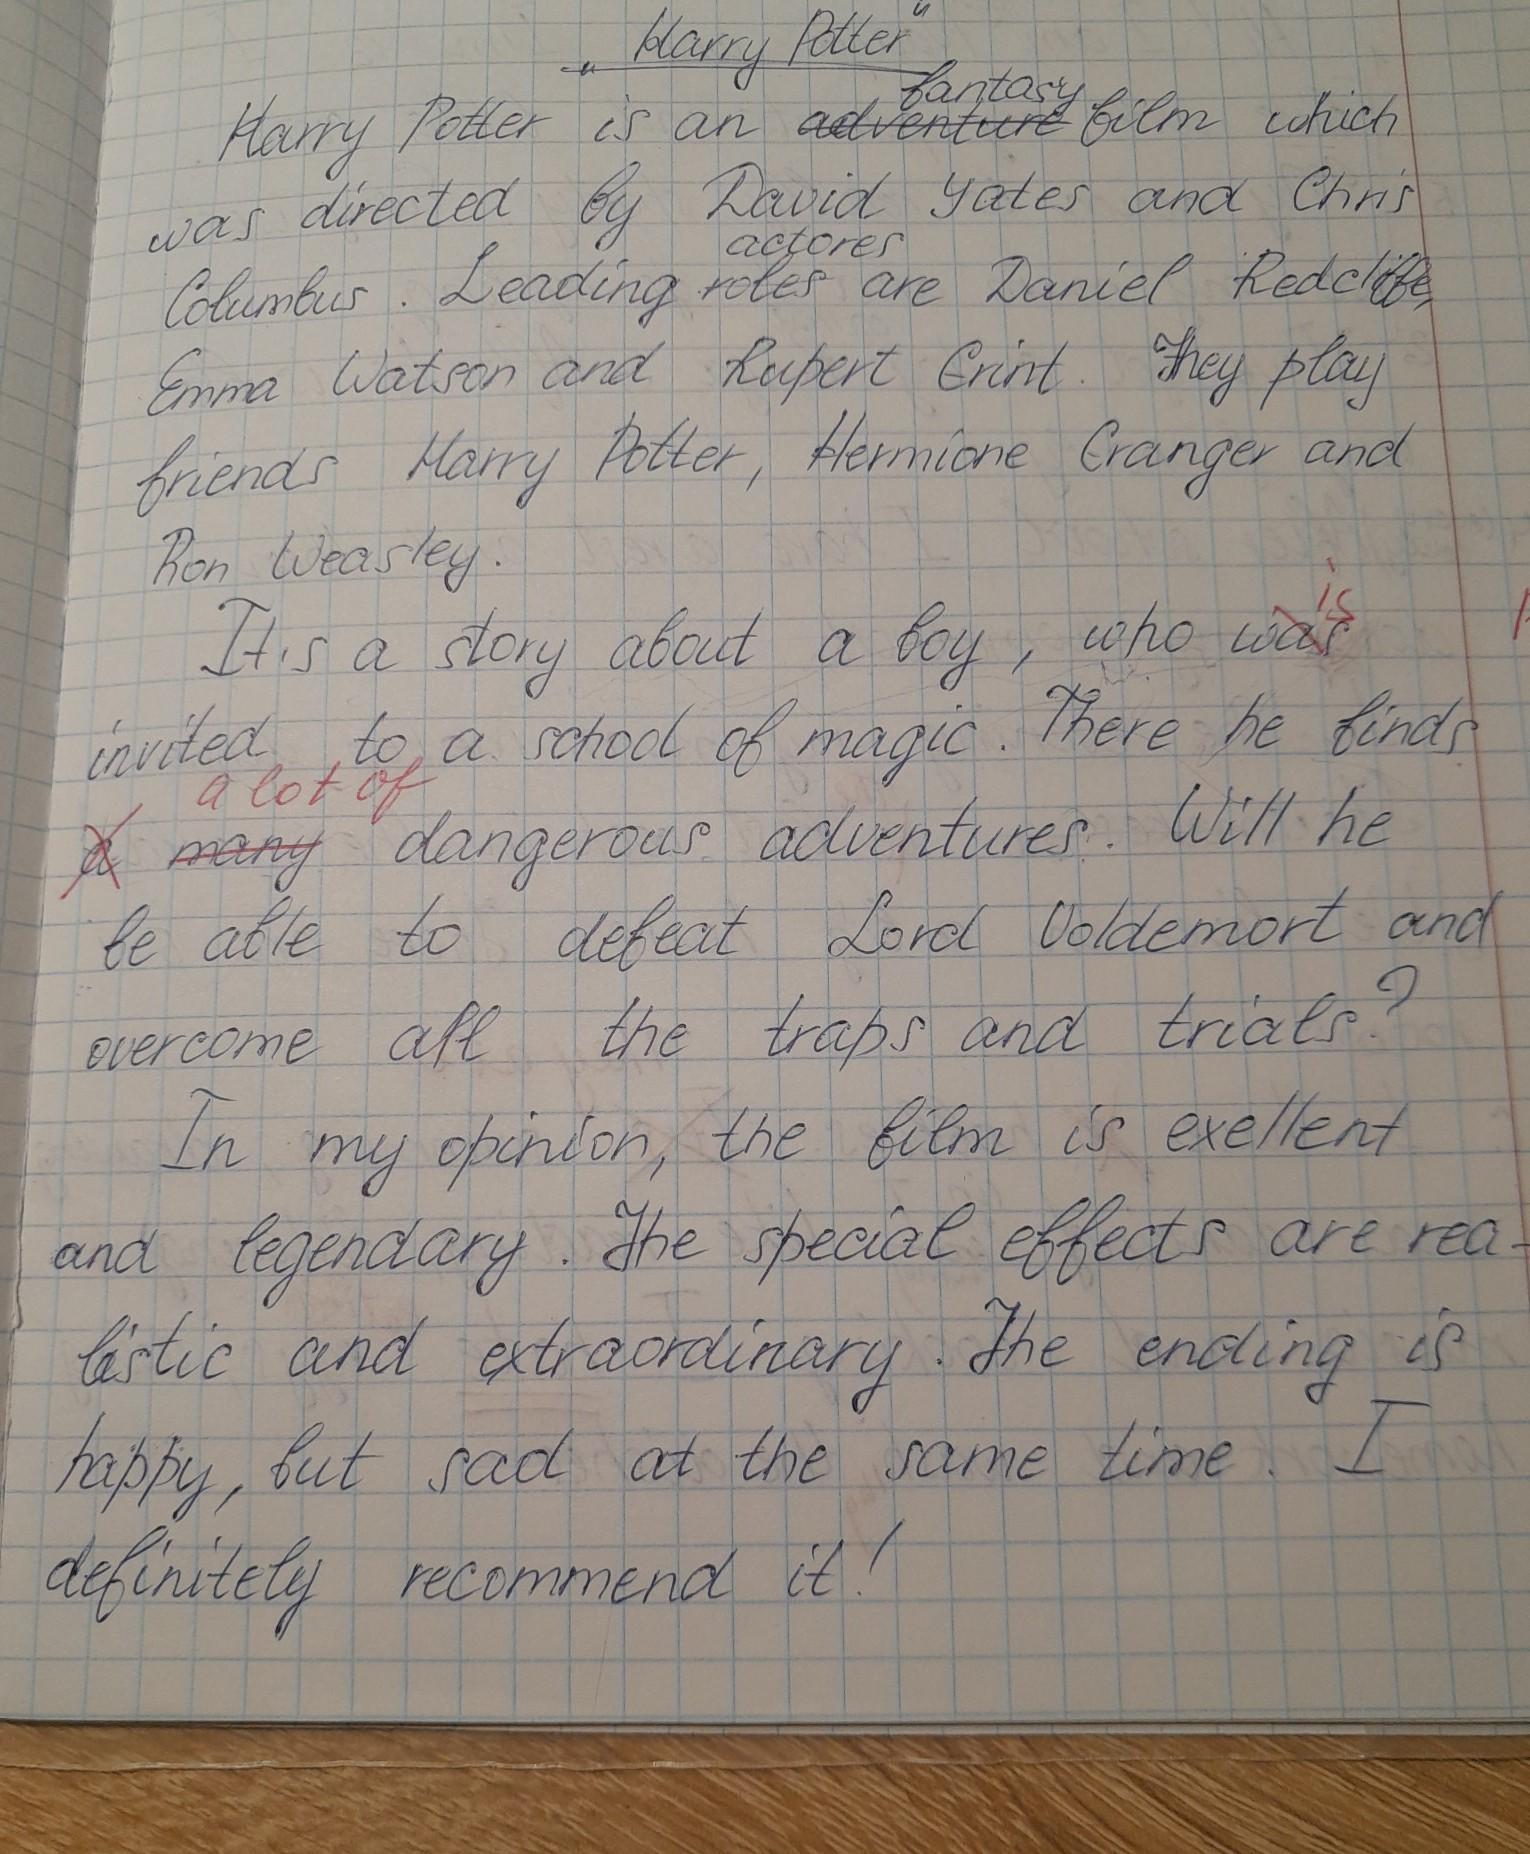 „Harry Potter"
fantasy
Harry Potter is an adventure film which
was directed by David Yates and Chris
actores
Columbus. Leading roles are Daniel Redcliffe,
Emma Watson and Rupert Grint. They play
friends Harry Potter, Hermione Granger and
Ron Weasley.
is
It's a story about a boy, who was
invited to a school of magic. There he finds
a lot of
a many dangerous adventures. Will he
be able to defeat Lord Voldemort and
overcome all the traps and trials?
In my opinion, the film is exellent
and legendary. The special effects are rea-
listic and extraordinary. The ending is
happy, but sad at the same time. I
definitely recommend it!